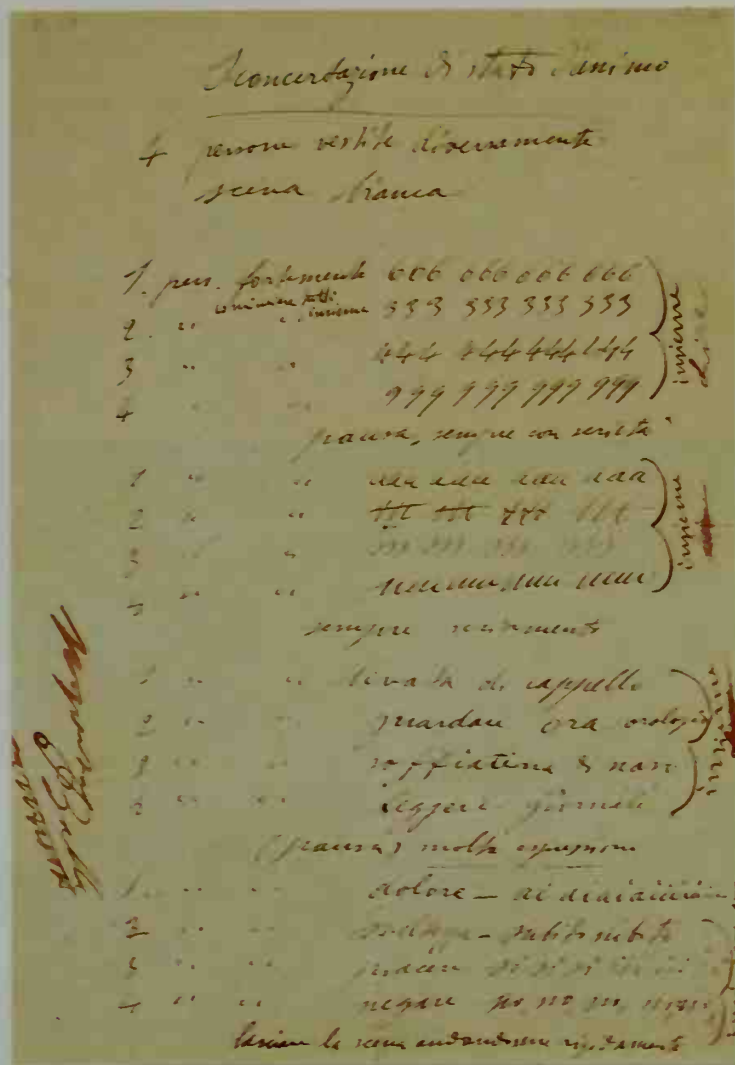 Sconcertazione di stati d'animo
4 persone vestite diversamente
scena bianca
1. pers. fortemente 666 666 666 666
cominciare tutti
2. " " insieme 333 333 333 333
3 " " 444 444 444 444
4 999 999 999 999
insieme
pausa, sempre con serietà
1 " " aaa aaa aaa aaa
2 " " ttt ttt ttt ttt
3 " "
" " uuu uuu uuu uuu
insieme
sempre seriamente
" " levata di cappello
2 " " guardare ora orologio
3 " " soffiatina di naso
" " leggere giornale
insieme
(pausa) molto espressione
1. " " dolore — ai aiaiaiaiai
2 " " subito subito
3 " " piacere si si si
4 " " negare no no no nono
lasciare la scena andandosene rigidamente